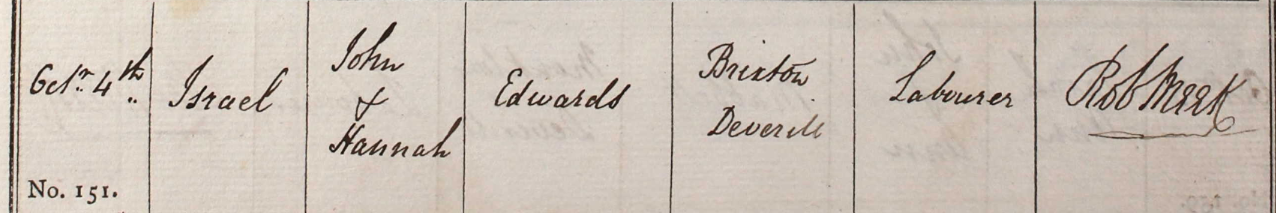 Octr. 4th
Israel
John
&
Hannah
Edwards
Brixton
Deverill
Labourer
Rob Meek
No. 151.